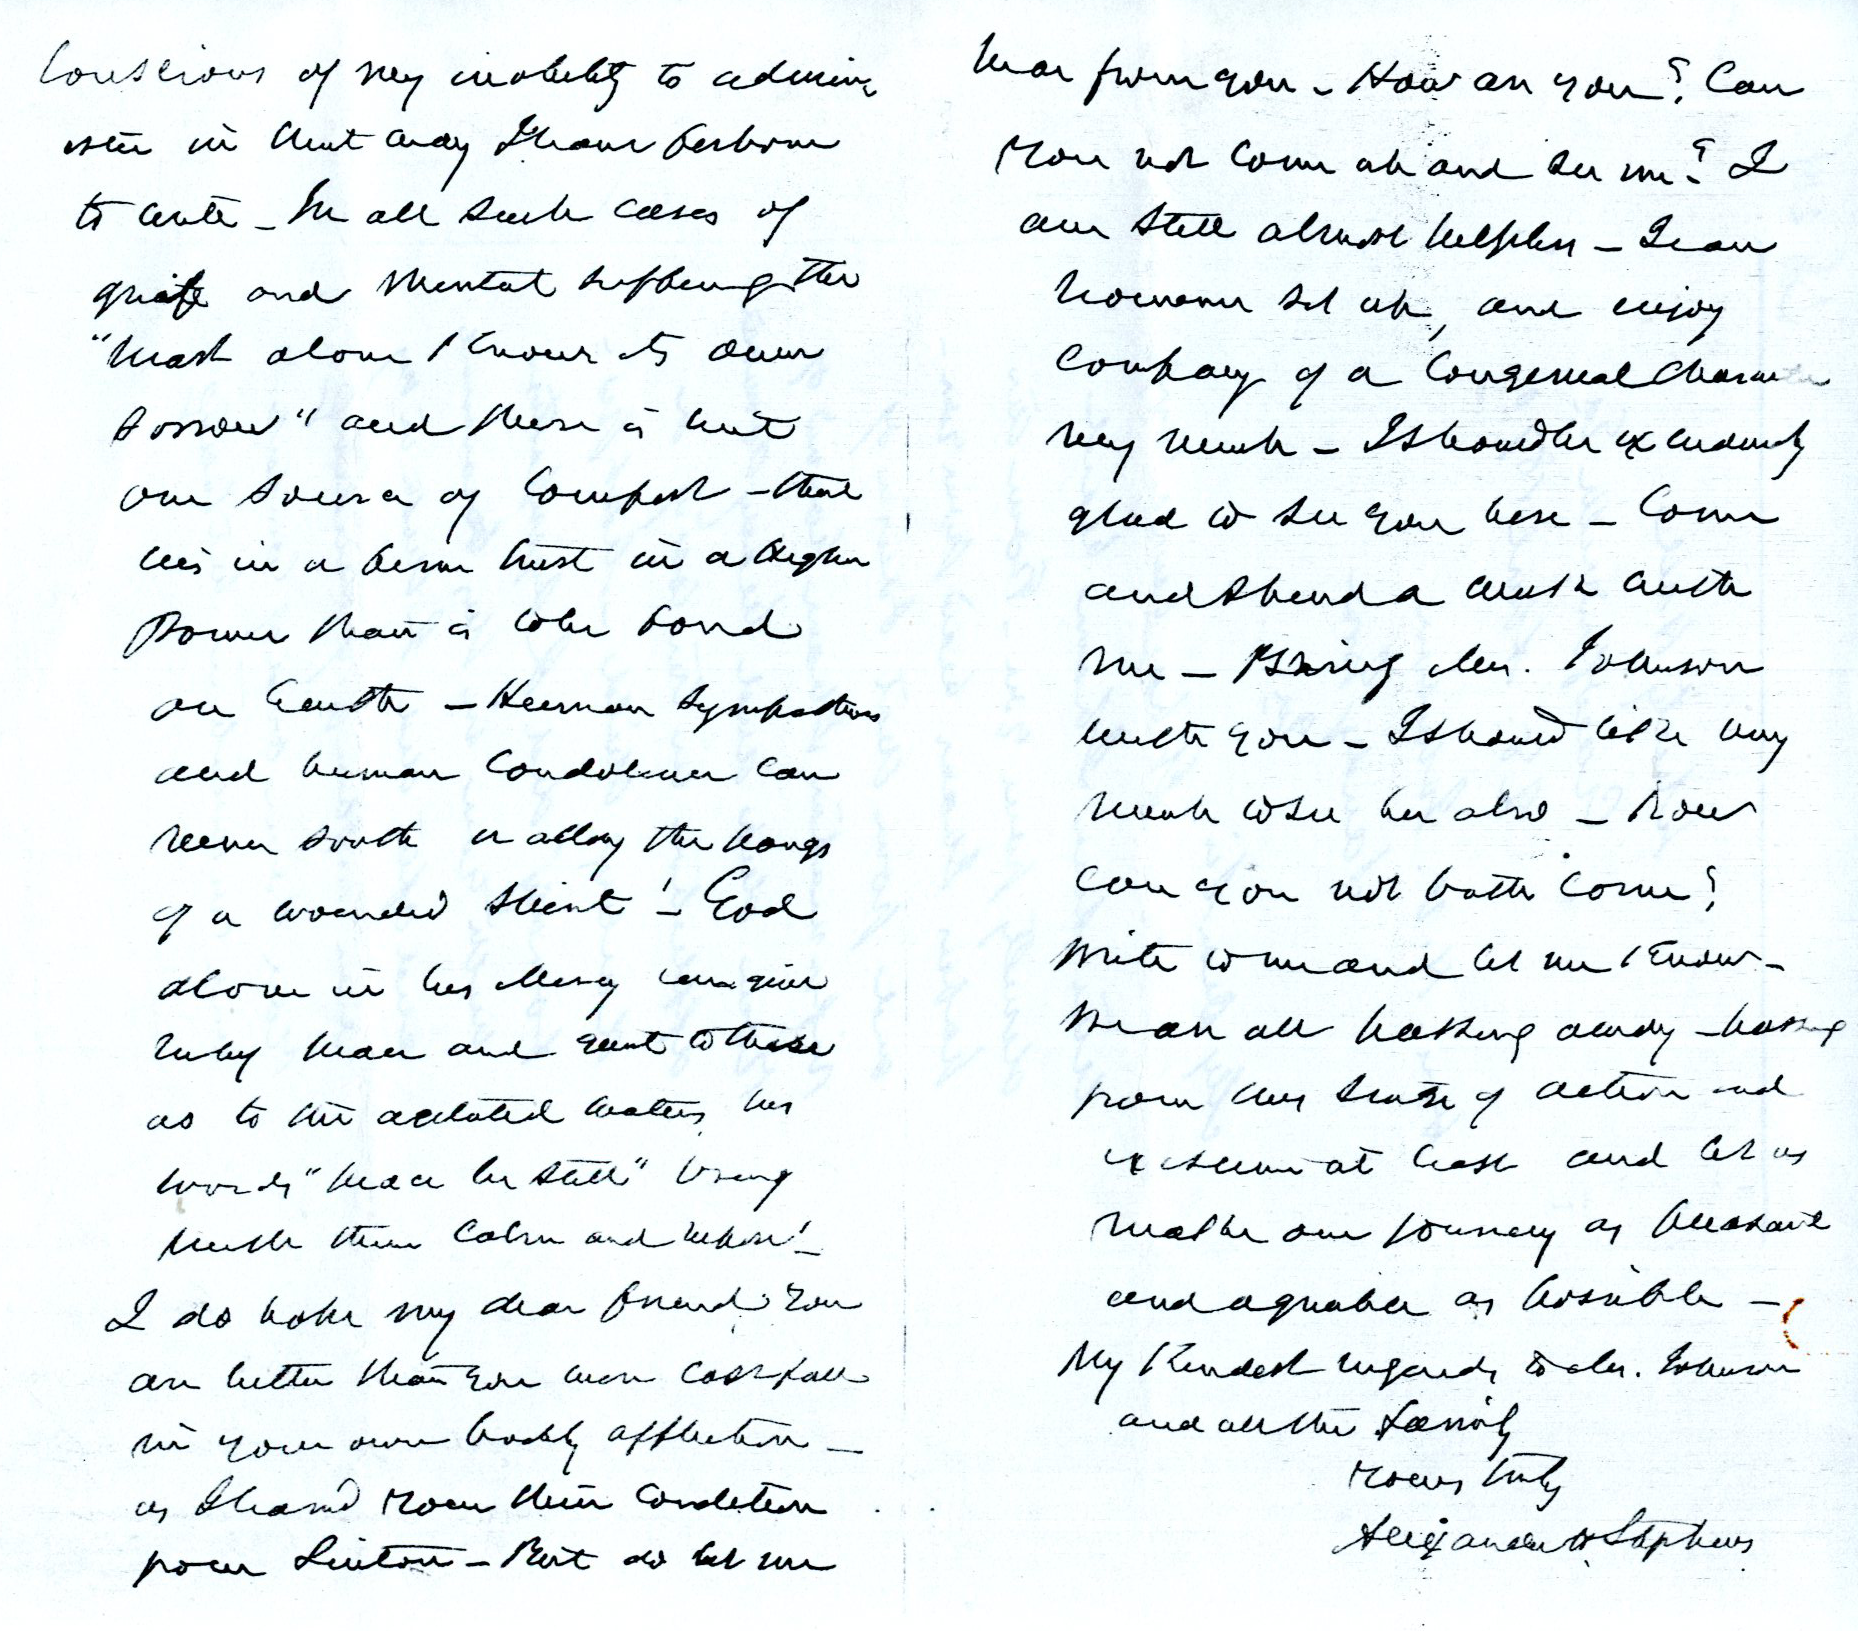 Conscious of my inability to admin-
ister in that way I have forborne
to write - In all such cases of
griefe and mental suffering the
"heart alone knows its own
sorrow" and there is but
one source of comfort - that
lies in a firm trust in a higher
Power than is to be found
on Earth - Human sympathies
and human condolence can
never soothe or allay the pangs
of a wounded spirit! - God
alone in his Mercy can give
peace and to these
as to the agitated waters, his
words "peace be still" bring
with them calm and repose! -
I do hope my dear friend you
are better than you were last fall
in your own bodily affliction -
as I heard your then condition
from Linton - But do let me
hear from you - How are you? Can
you not come up and see me? I
am still almost helpless - I can
however sit up, and enjoy
Company of a Congenial Character
very much - I should be exceedingly
glad to see you here - Come
and spend a week with
me - Bring Mrs. Johnson
with you - I should like very
much to see her also - Now
can you not both come?
Write to me and let me know -
We are all passing away - passing
from this of action and
at least and let us
make our journey as pleasant
and agreeable as possible -
My Kindest regards to Mrs. Johnson
and all the family
Yours truly
Alexander H Stephens